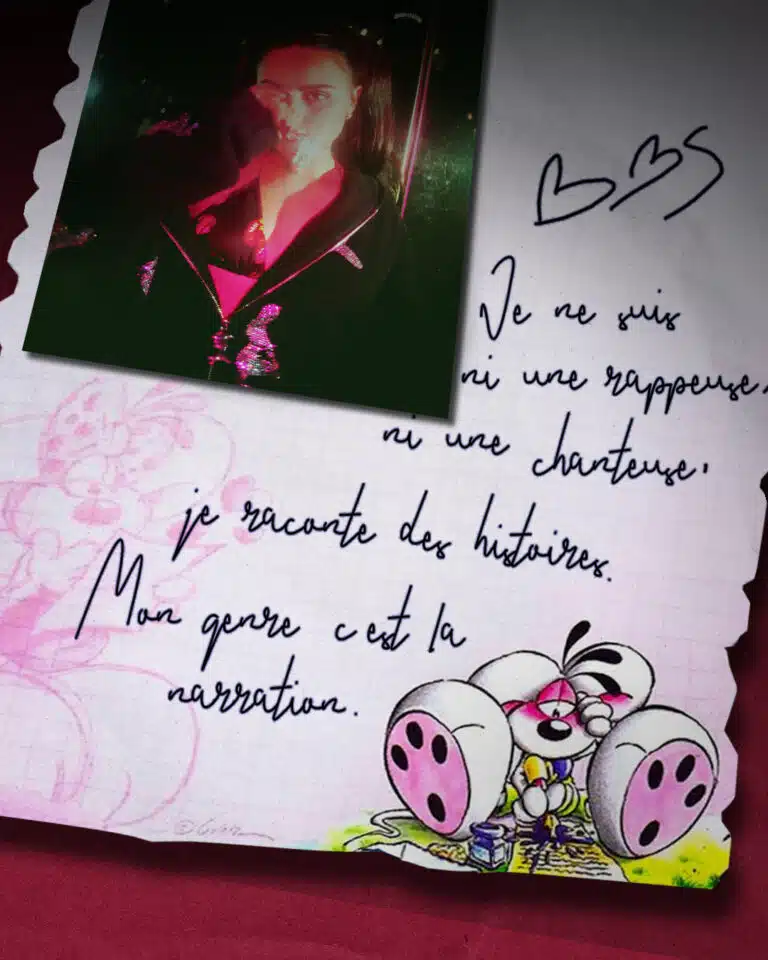 Je ne suis
ni une rappeuse,
ni une chanteuse,
je raconte des histoires.
Mon genre c est la
narration.